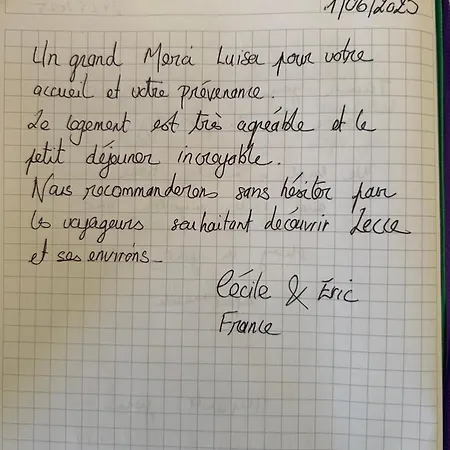 1/06/2025
Un grand Merci Luisa pour votre
accueil et votre prévenance.
Le logement est très agréable et le
petit déjeuner incroyable.
Nous recommanderons sans hésiter pour
les voyageurs souhaitant découvrir Lecce
et ses environs_
Cécile & Eric
France